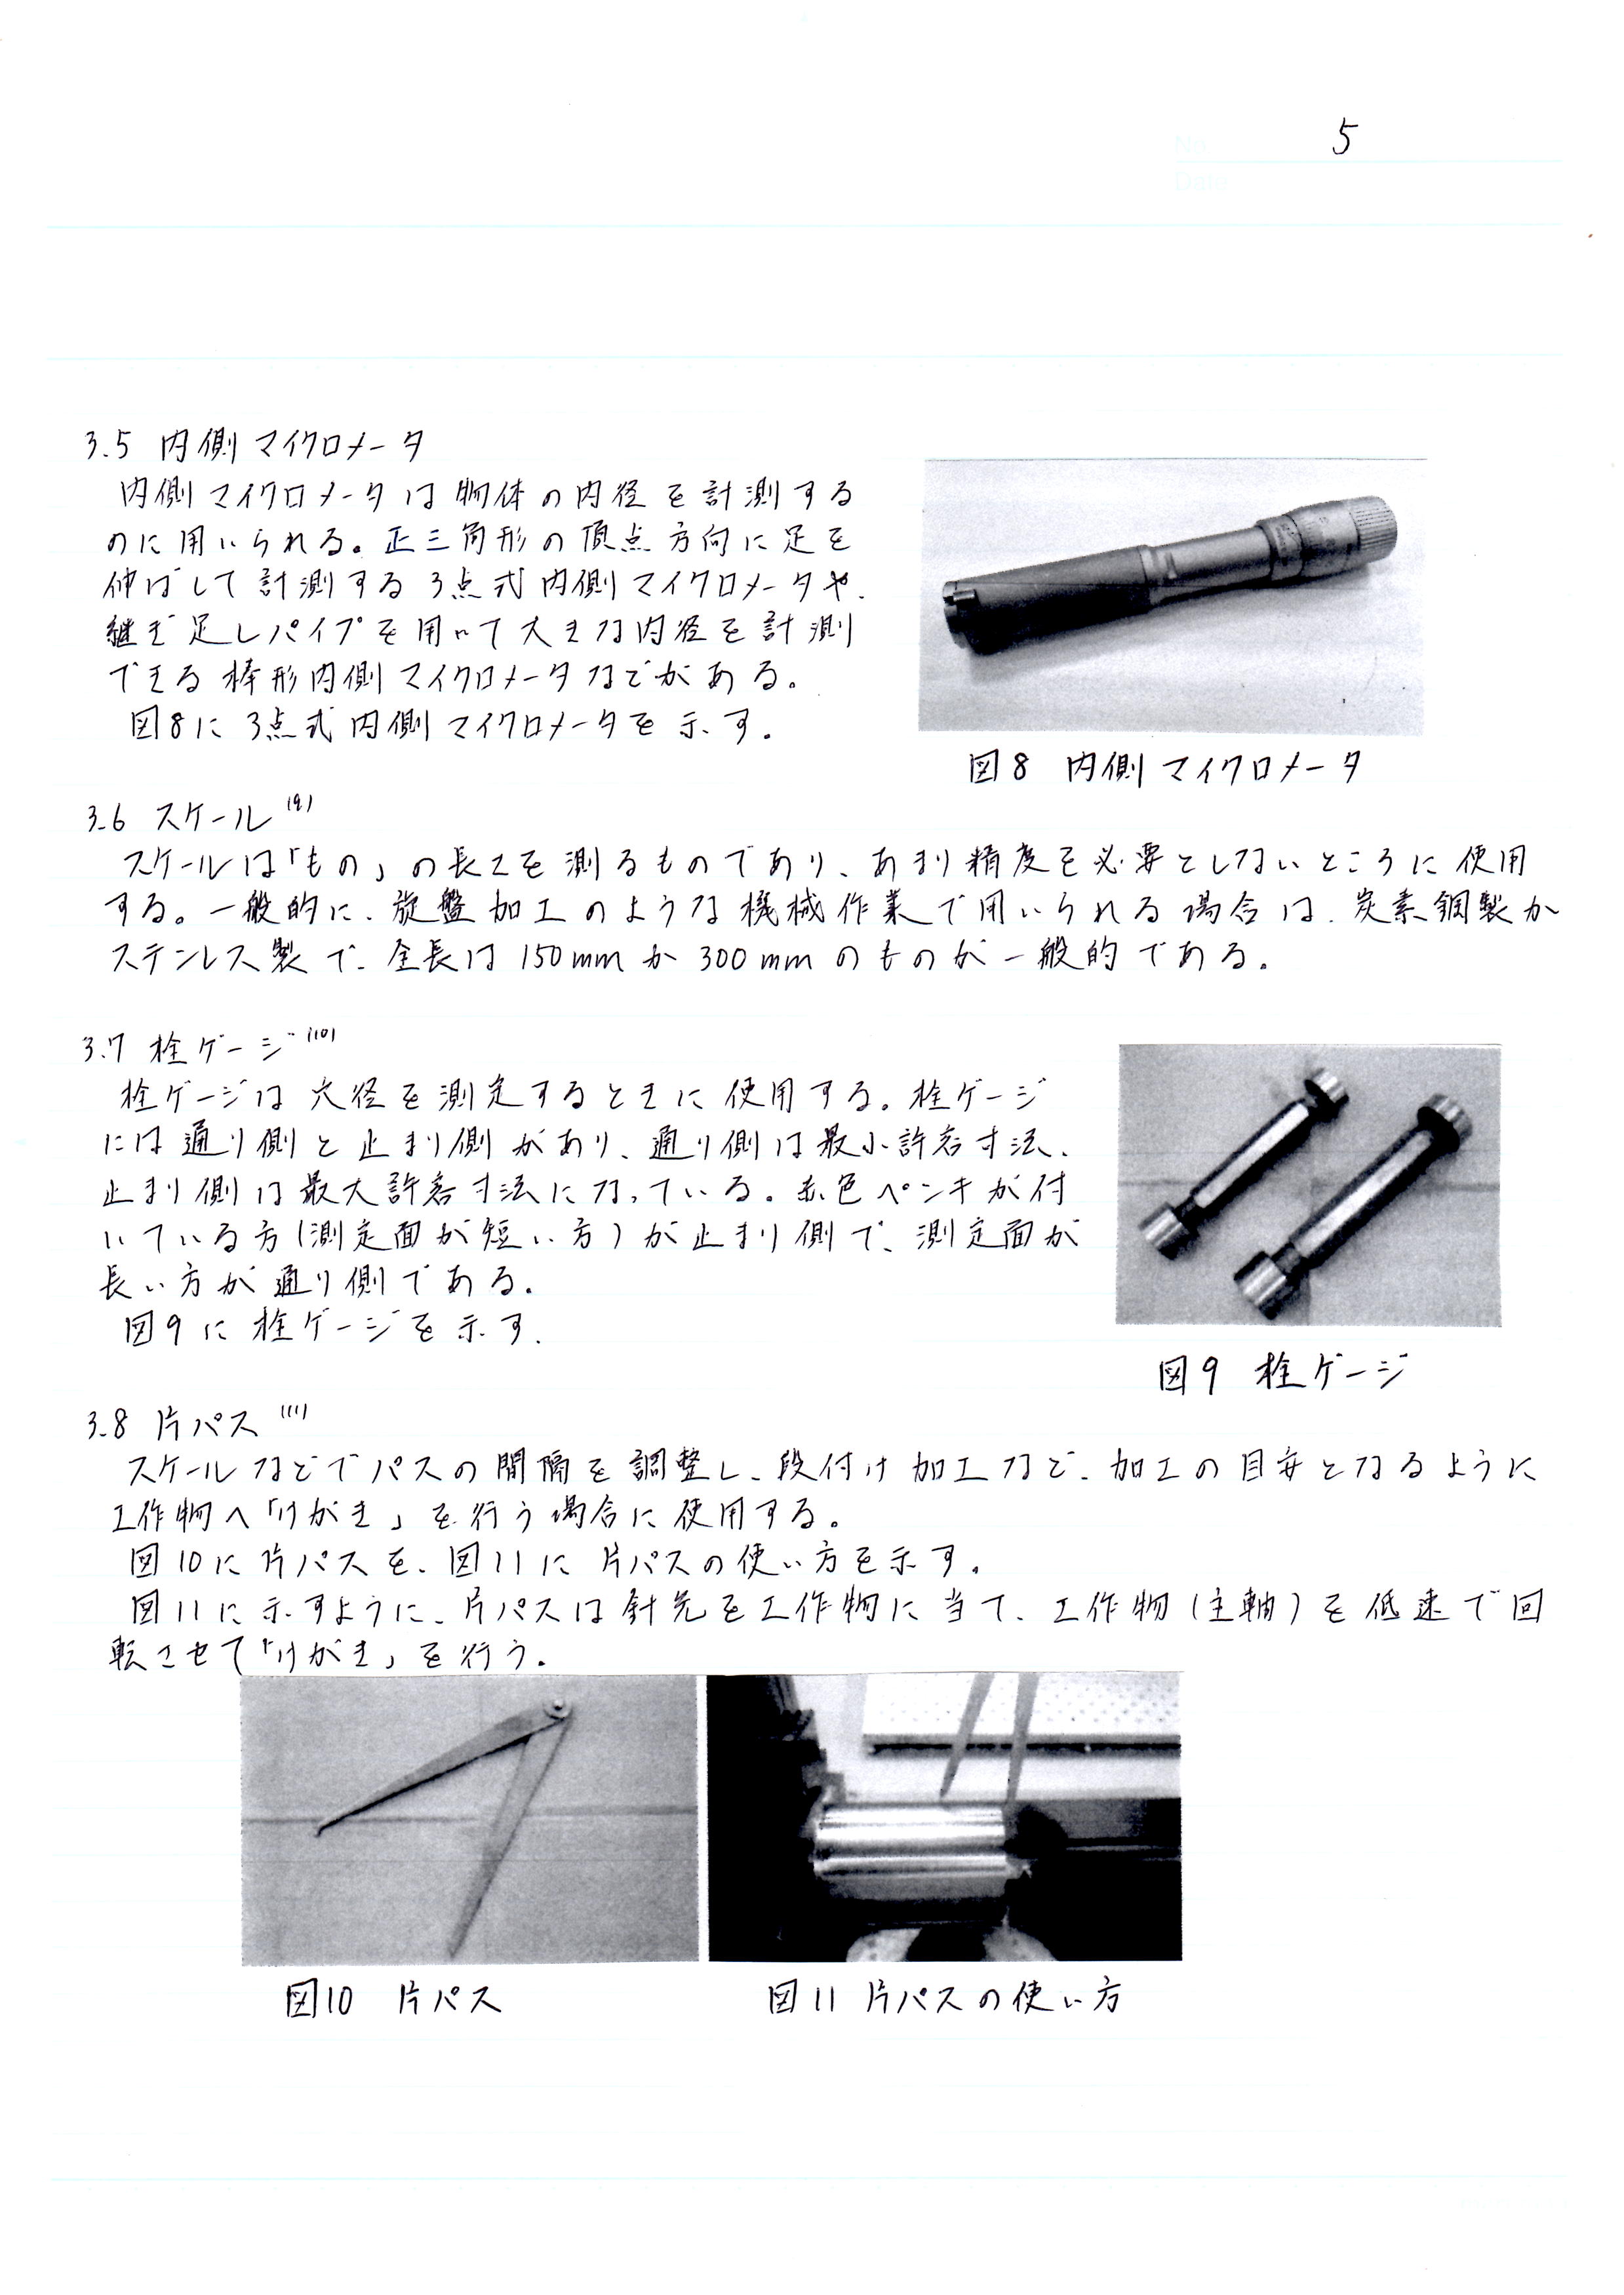 No.
5
Date
3.5 内側マイクロメータ
内側マイクロメータは物体の内径を計測する
のに用いられる。正三角形の頂点方向に足を
伸ばして計測する3点式内側マイクロメータや、
継ぎ足しパイプを用いて大きな内径を計測
できる棒形内側マイクロメータなどがある。
図8に3点式内側マイクロメータを示す。
図8 内側マイクロメータ
3.6 スケール(9)
スケールは「もの」の長さを測るものであり、あまり精度を必要としないところに使用
する。一般的に、旋盤加工のような機械作業で用いられる場合は、炭素鋼製か
ステンレス製で、全長は150mmか300mmのものが一般的である。
3.7 栓ゲージ(10)
栓ゲージは穴径を測定するときに使用する。栓ゲージ
には通り側と止まり側があり、通り側は最小許容寸法、
止まり側は最大許容寸法になっている。赤色ペンキが付
いている方(測定面が短い方)が止まり側で、測定面が
長い方が通り側である。
図9に栓ゲージを示す.
図9 栓ゲージ
3.8 片パス(11)
スケールなどでパスの間隔を調整し、段付け加工など、加工の目安となるように
工作物へ「けがき」を行う場合に使用する。
図10に片パスを、図11に片パスの使い方を示す。
図11に示すように、片パスは針先を工作物に当て、工作物(主軸)を低速で回
転させて「けがき」を行う。
図10 片パス
図11 片パスの使い方